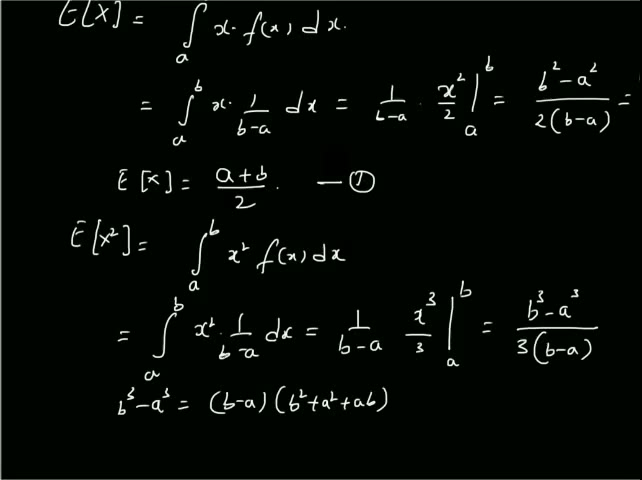 E[X] = ∫ₐ x· f(x) dx.
= ∫ₐᵇ x· 1/(b-a) dx = 1/(b-a) · x²/2 |ₐᵇ = (b²-a²)/(2(b-a)) =
E[X] = (a+b)/2. — ①
E[X²] = ∫ₐᵇ x² f(x) dx
= ∫ₐᵇ x² · 1/(b-a) dx = 1/(b-a) x³/3 |ₐᵇ = (b³-a³)/(3(b-a))
b³-a³ = (b-a)(b²+a²+ab)